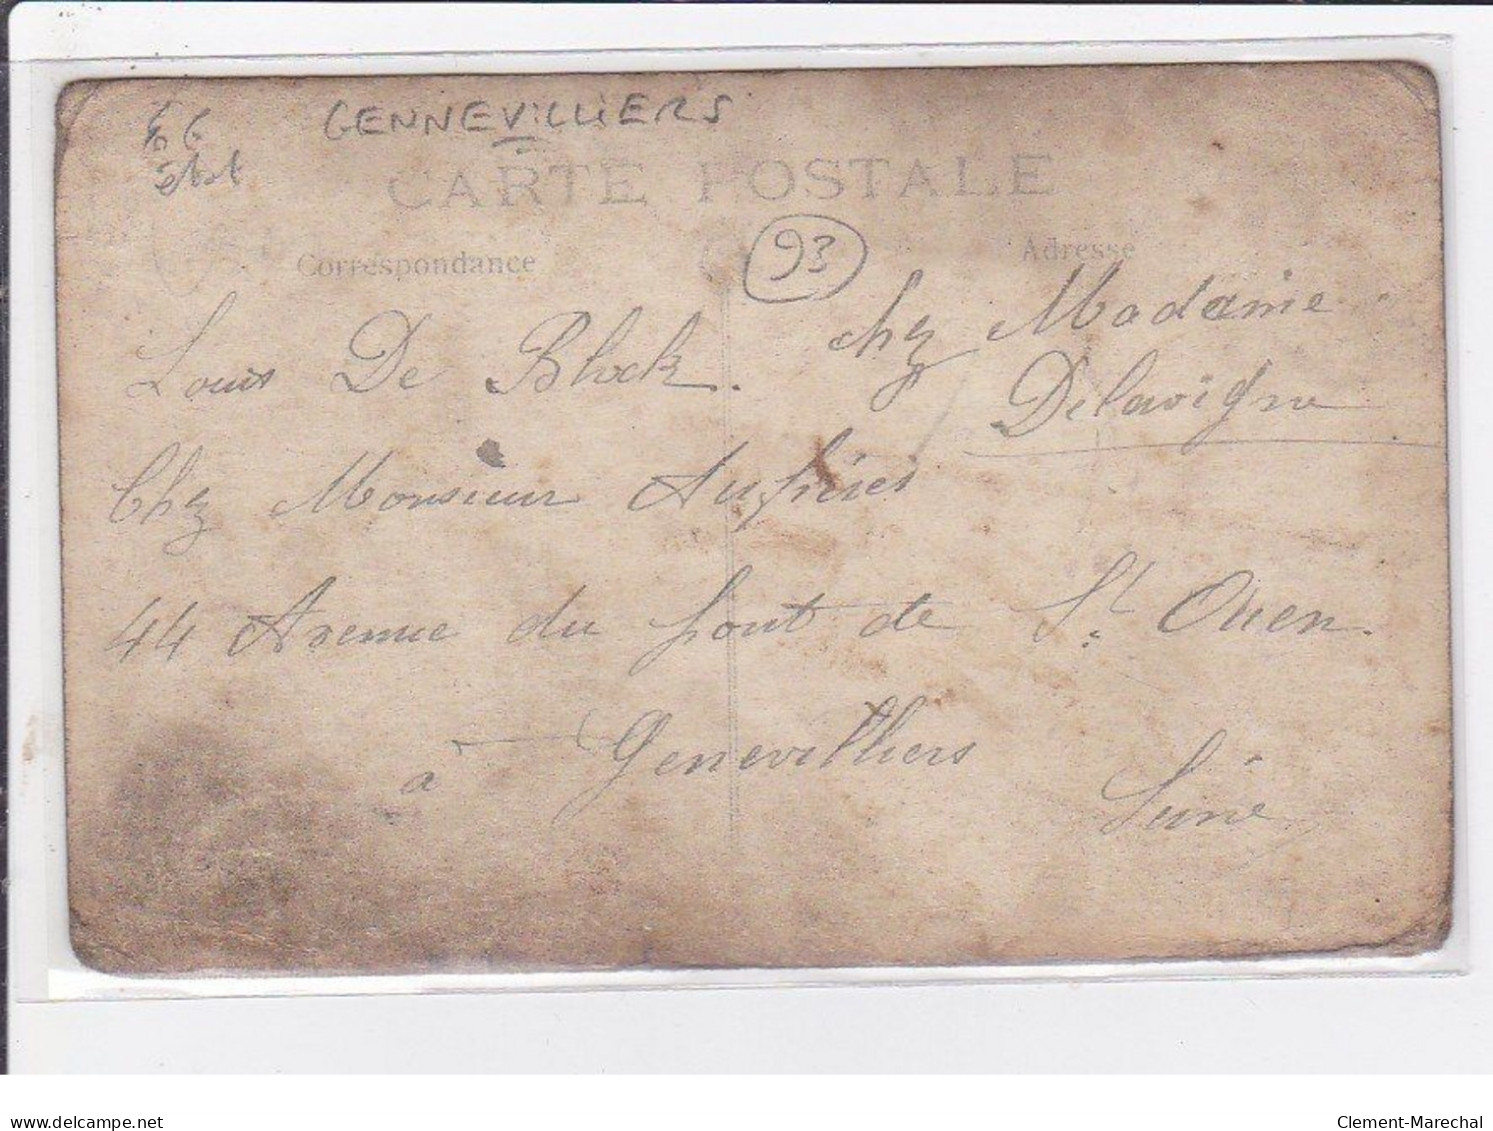 GENNEVILLIERS
état
CARTE POSTALE
93
Correspondance
Adresse
Louis De Block. chez Madame
Delavigne
Chez Monsieur
44 Avenue du pont de St. Ouen.
à Genevilliers
Seine
delcampe.net
Clement-Marechal